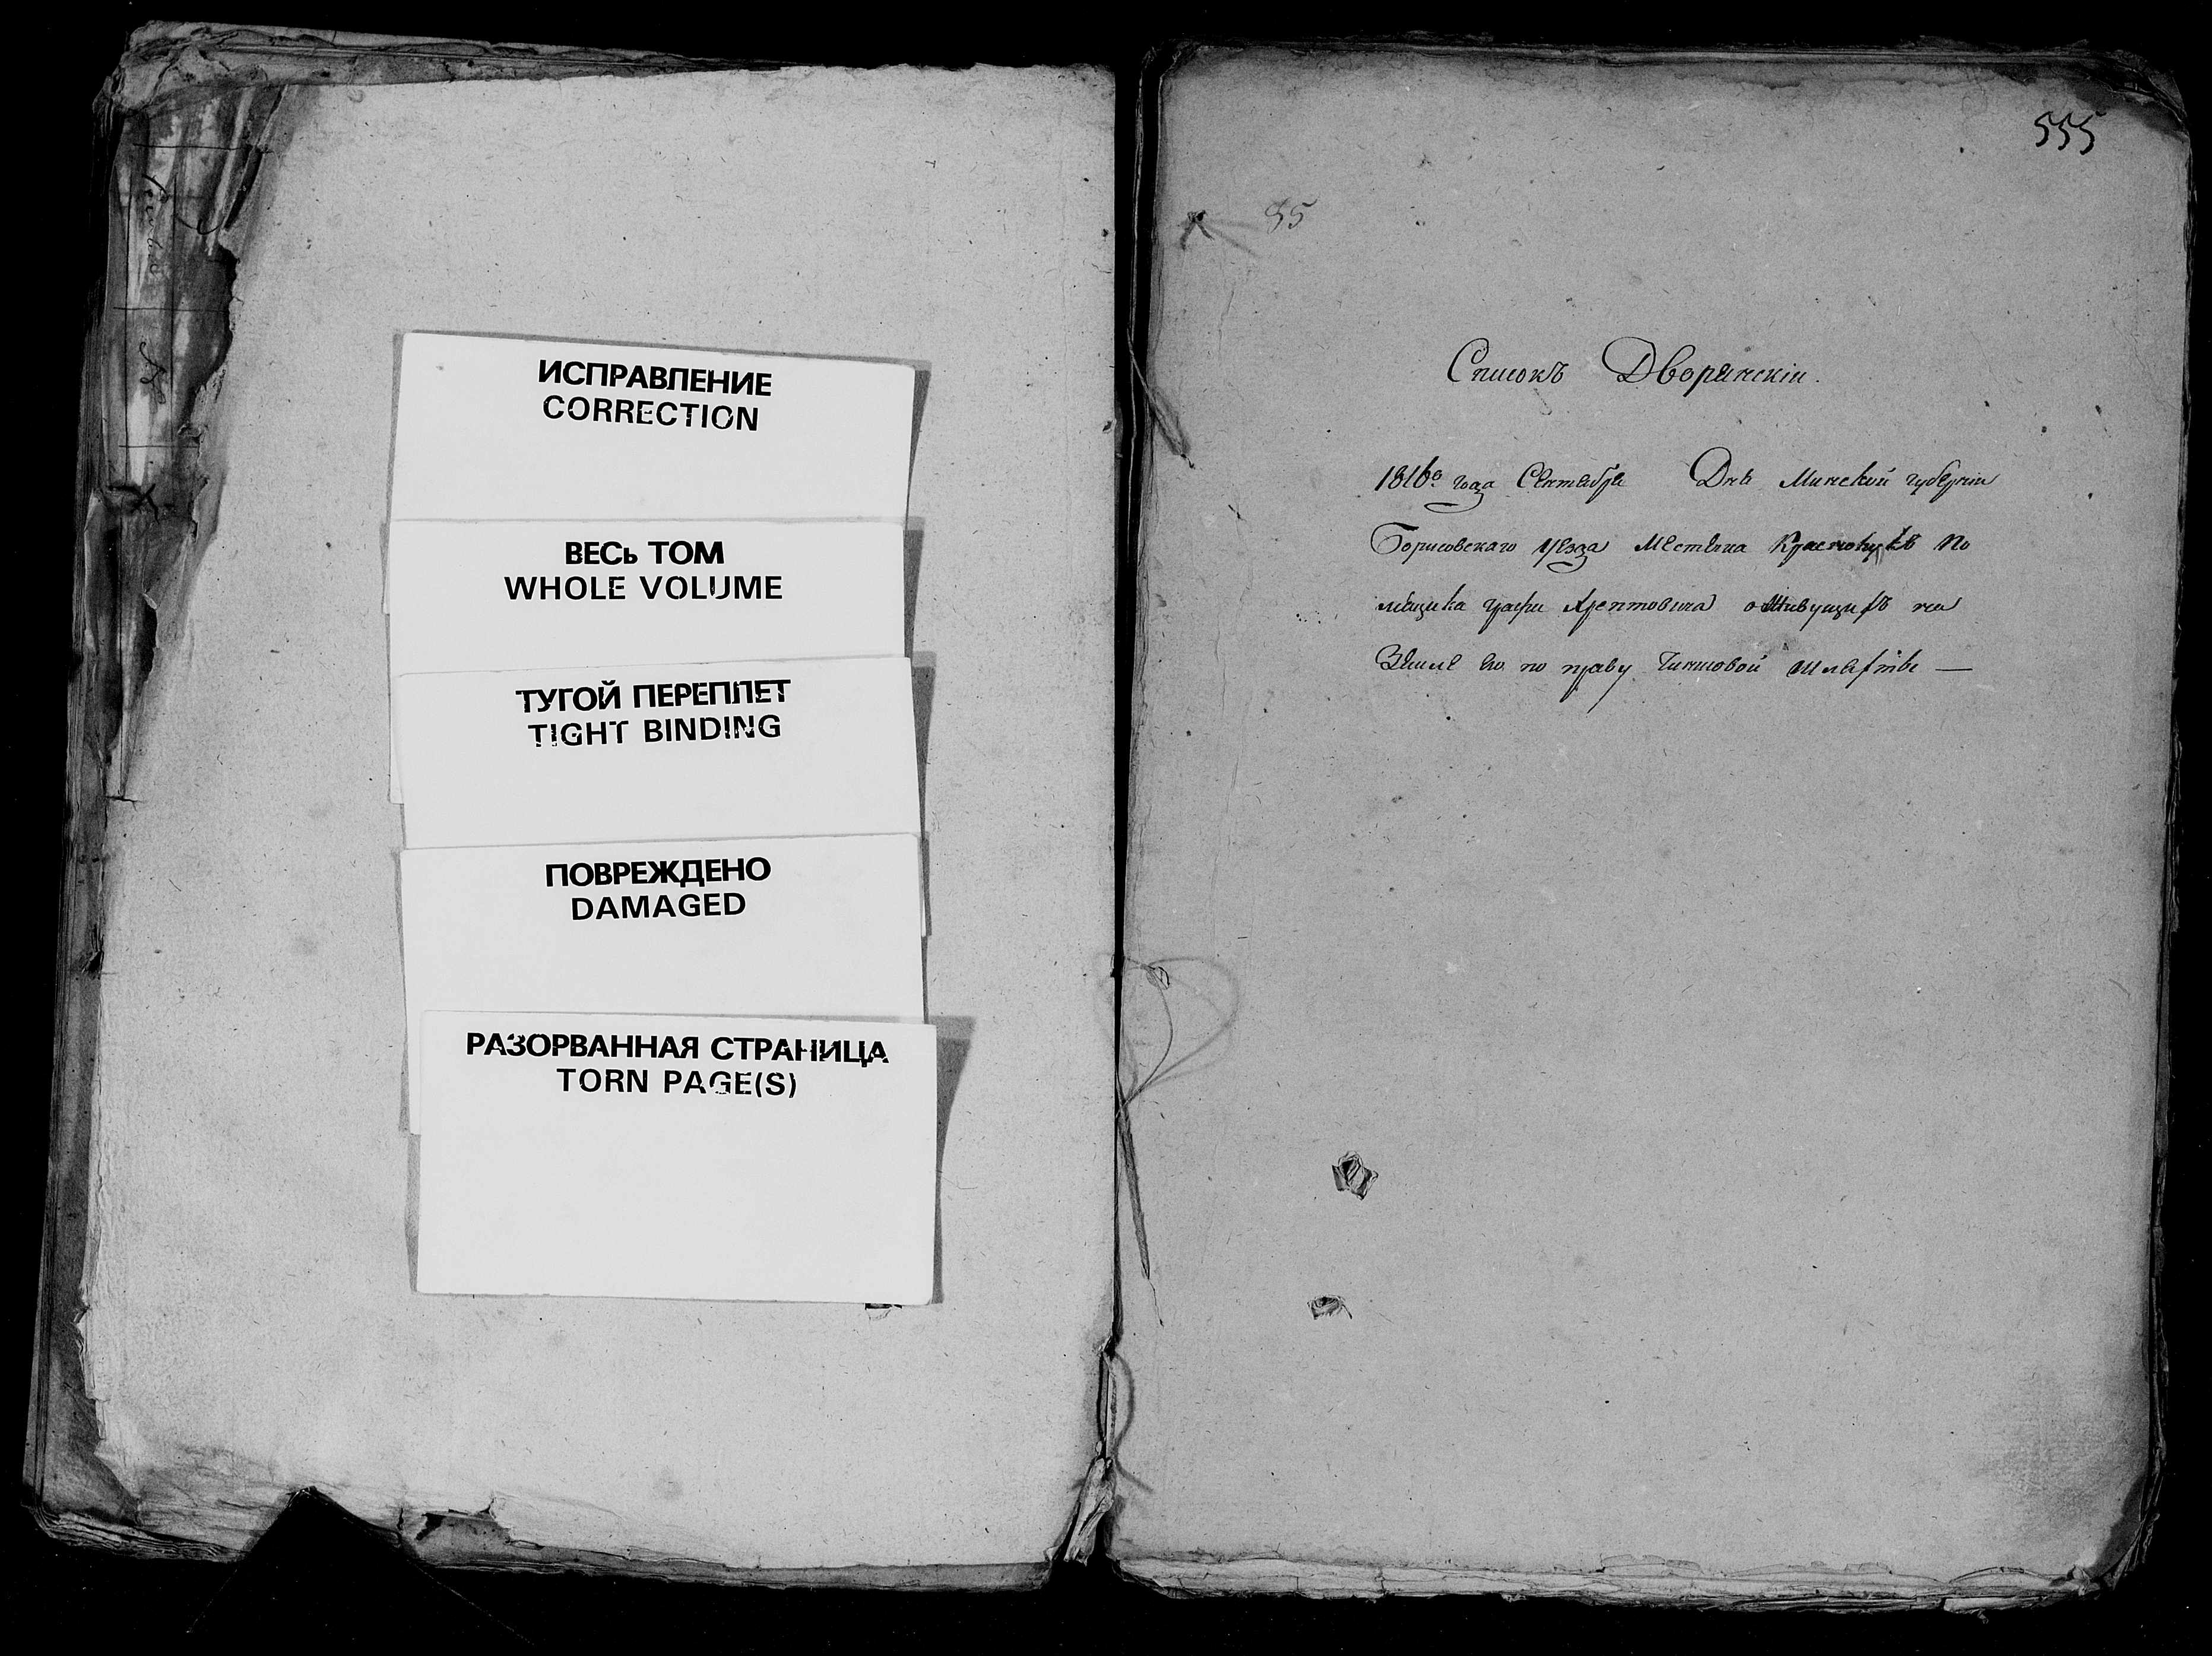 ИСПРАВЛЕНИЕ
CORRECTION
ВЕСЬ ТОМ
WHOLE VOLUME
ТУГОЙ ПЕРЕПЛЕТ
TIGHT BINDING
ПОВРЕЖДЕНО
DAMAGED
РАЗОРВАННАЯ СТРАНИЦА
TORN PAGE(S)
555
Списокъ Дворянскiи.
1816го года Сентября Дня Минской губернiи
Борисовскаго уезда Местечка По
мещика графа Хрептовича о живущихъ на
Земле его по праву Чиншовой Шляхтѣ —